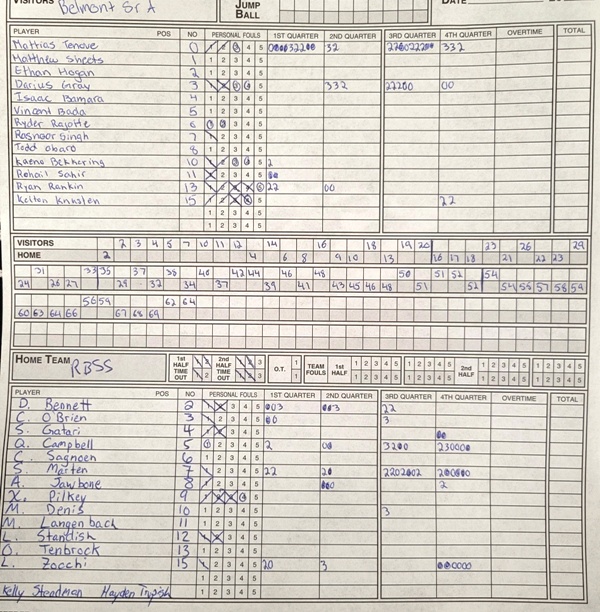 VISITORS Belmont Sr A
JUMP BALL
DATE
PLAYER POS NO PERSONAL FOULS 1ST QUARTER 2ND QUARTER 3RD QUARTER 4TH QUARTER OVERTIME TOTAL
Mattias Tenove 0 1 2 3 4 5 32 332
Matthew Sheets 1 1 2 3 4 5
Ethan Hogan 2 1 2 3 4 5
Darius Gray 3 1 2 3 4 5 332 22200 00
Isaac Bamara 4 1 2 3 4 5
Vincent Bada 5 1 2 3 4 5
Ryder Rajotte 6 1 2 3 4 5
Rasnoor Singh 7 1 2 3 4 5
Todd Obaro 8 1 2 3 4 5
Kaeno Bekkering 10 1 2 3 4 5 2
Rohail Sahir 11 1 2 3 4 5
Ryan Rankin 13 1 2 3 4 5 22 00
Kelton Knutsen 15 1 2 3 4 5 22
1 2 3 4 5
1 2 3 4 5
VISITORS 2 3 4 5 7 10 11 12 14 16 18 19 20 23 26 29
HOME 2 4 6 8 9 10 13 16 17 18 21 22 23
31 33 35 37 38 40 42 44 46 48 50 51 52 54
24 26 27 29 32 34 37 39 41 43 45 46 48 51 52 54 55 57 58 59
56 59 62 64
60 63 64 66 67 68 69
HOME TEAM RBSS
1st HALF TIME OUT 1 2 1 2 2nd HALF TIME OUT 1 2 3 1 2 3 O.T. 1 1 TEAM FOULS 1st HALF 1 2 3 4 5 1 2 3 4 5 2nd HALF 1 2 3 4 5 1 2 3 4 5
PLAYER POS NO PERSONAL FOULS 1ST QUARTER 2ND QUARTER 3RD QUARTER 4TH QUARTER OVERTIME TOTAL
D. Bennett 2 1 2 3 4 5 22
C. O'Brien 3 1 2 3 4 5 3
S. Gatari 4 1 2 3 4 5
Q. Campbell 5 1 2 3 4 5 2 3200 230000
C. Sagnoen 6 1 2 3 4 5
S. Marten 7 1 2 3 4 5 22 20 2202002
A. Jawbone 8 1 2 3 4 5 2
X. Pilkey 9 1 2 3 4 5
M. Denis 10 1 2 3 4 5 3
M. Langenbach 11 1 2 3 4 5
L. Standish 12 1 2 3 4 5
O. Tenbrock 13 1 2 3 4 5
L. Zocchi 15 1 2 3 4 5 20 3
1 2 3 4 5
Kelly Steadman Hayden 1 2 3 4 5